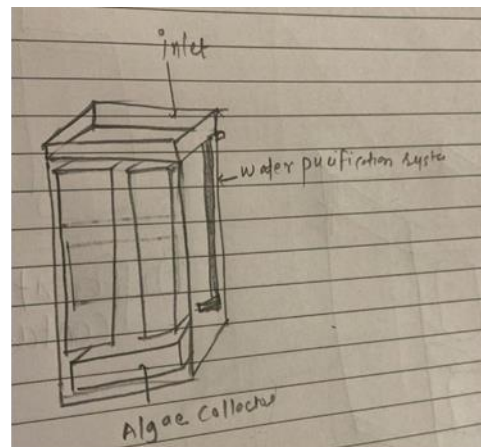 inlet
water purification syste
Algae Collector